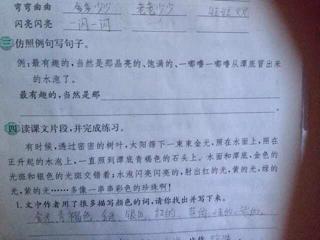 弯弯曲曲 多多少少 老老少少
闪亮闪亮 一闪一闪
三 仿照例句写句子。
例:最有趣的,当然是那晶亮的、饱满的、一嘟噜一嘟噜从潭底冒出来
的水泡了。
最有趣的,当然是那
四 读课文片段,并完成练习。
有时候,透过密密的树叶,太阳筛下一束束金光,照在水面上,照在
正升起的水泡上,一直照到潭底青褐色的石头上。水面和潭底,金色的
光斑和银色的光斑交错着;水泡闪亮闪亮的,射出红的光,黄的光,绿的
光,黄的光……多像一串串彩色的珍珠啊!
1.文中作者用了很多描写颜色的词,请你找出并写下来。
金光 青褐色 金色 银色 红的